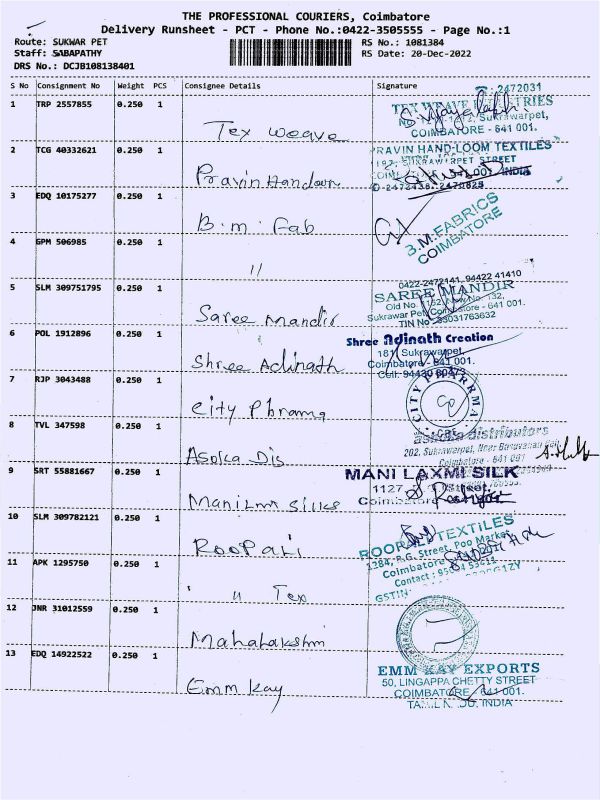 THE PROFESSIONAL COURIERS, Coimbatore
Delivery Runsheet - PCT - Phone No.:0422-3505555 - Page No.:1
Route: SUKWAR PET
RS No.: 1081384
Staff: SABAPATHY
RS Date: 20-Dec-2022
DRS No.: DCJB108138401
S No Consignment No Weight PCS Consignee Details Signature
1 TRP 2557855 0.250 1
2472031
TEX WEAVE INDUSTRIES
Sukrawarpet,
COIMBATORE - 641 001.
Tex weave
2 TCG 40332621 0.250 1
PRAVIN HAND-LOOM TEXTILES
SUKRAWARPET STREET
INDIA
Pravin Handoom
3 EDQ 10175277 0.250 1
B.M. Fab
B.M.FABRICS
COIMBATORE
4 GPM 506985 0.250 1
"
5 SLM 309751795 0.250 1
0422-2472141, 94422 41410
SAREE MANDIR
Old No. 152, New No. 132,
Sukrawar Pet, Coimbatore - 641 001.
TIN No. 33031763632
Saree Mandir
6 POL 1912896 0.250 1
Shree Adinath Creation
181, Sukrawarpet,
Coimbatore - 641 001.
Cell: 94430 60473
Shree Adinath
7 RJP 3043488 0.250 1
CITY PHARRMA
CBE
City Phrama
8 TVL 347598 0.250 1
asoka distributors
202, Sukrawarpet, Near
Coimbatore - 641 001
Asoka Dis
9 SRT 55881667 0.250 1
MANI LAXMI SILK
1127,
Street,
Manilmi silks
10 SLM 309782121 0.250 1
ROOPALI TEXTILES
1284, R.G. Street, Poo Market
Coimbatore
Contact :
GSTIN:
Roopali
11 APK 1295750 0.250 1
" Tex
12 JNR 31012559 0.250 1
Mahalakshmi
13 EDQ 14922522 0.250 1
EMM KAY EXPORTS
50, LINGAPPA CHETTY STREET
COIMBATORE - 641 001.
INDIA
Emm Kay